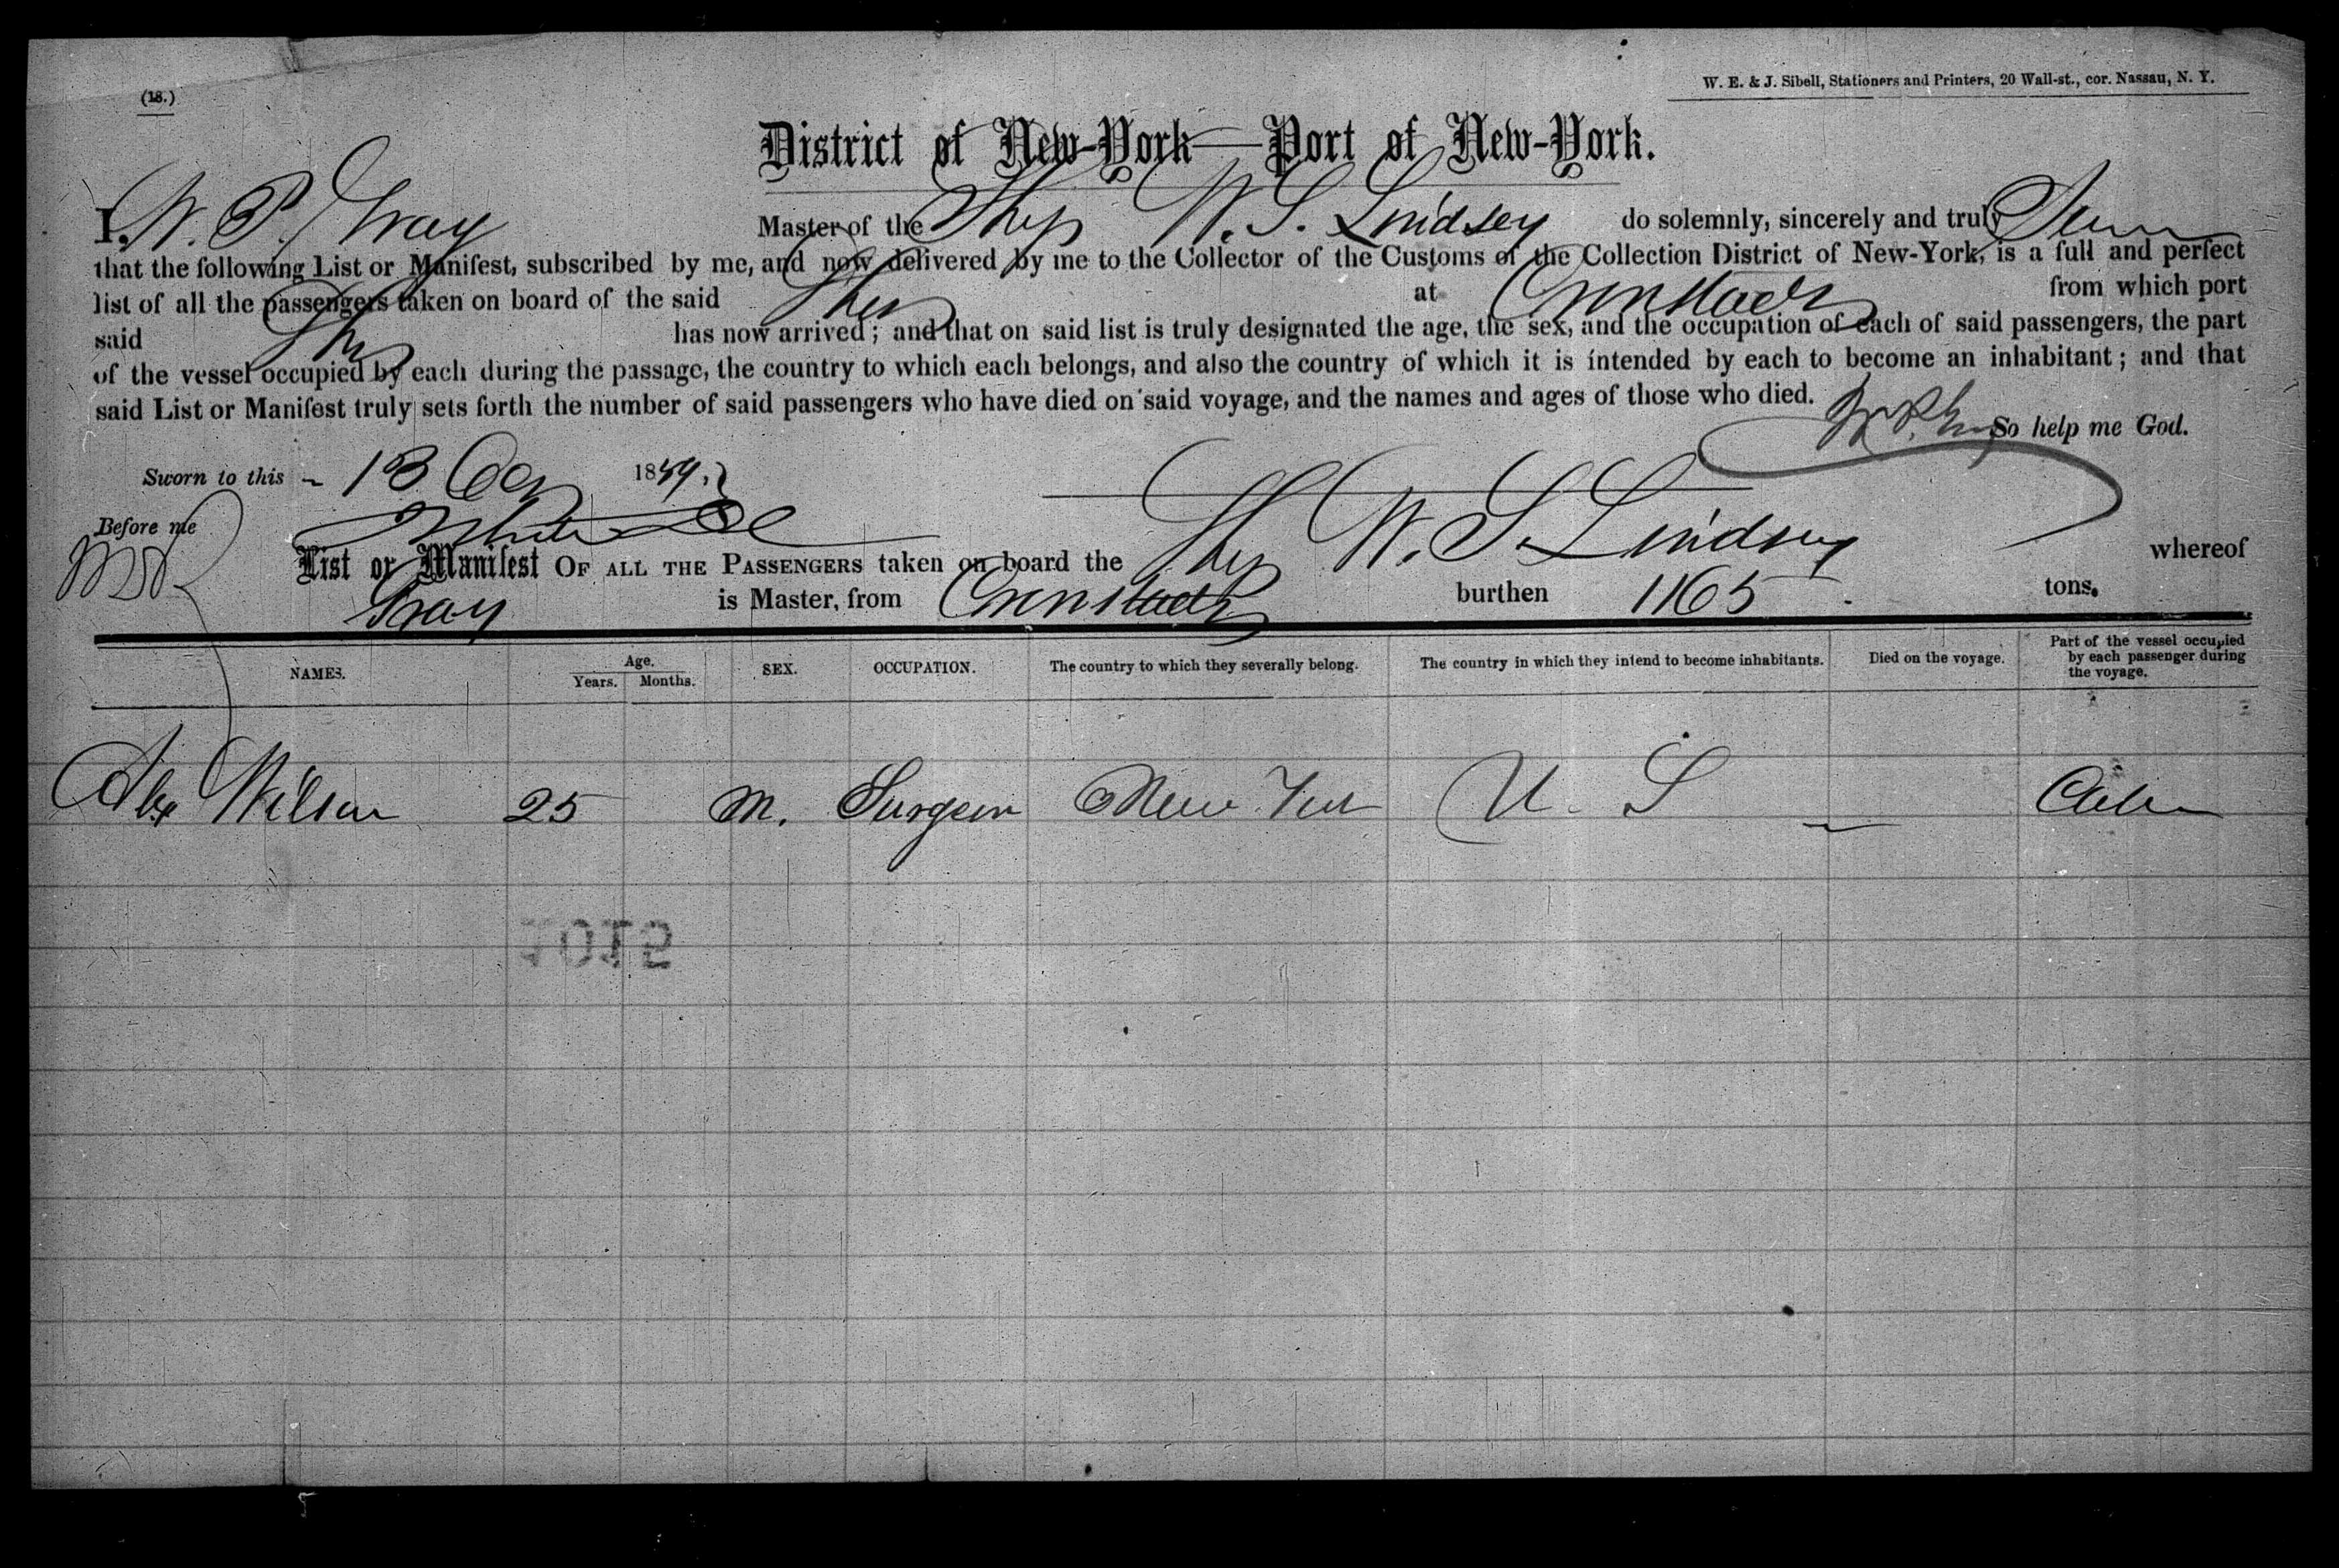 (18.)
W. E. & J. Sibell, Stationers and Printers, 20 Wall-st., cor. Nassau, N. Y.
District of New-York—Port of New-York.
I, W. P. Gray Master of the Ship W. S. Lindsey do solemnly, sincerely and truly
that the following List or Manifest, subscribed by me, and now delivered by me to the Collector of the Customs of the Collection District of New-York, is a full and perfect
list of all the passengers taken on board of the said Ship at Cronstadt from which port
said Ship has now arrived; and that on said list is truly designated the age, the sex, and the occupation of each of said passengers, the part
of the vessel occupied by each during the passage, the country to which each belongs, and also the country of which it is intended by each to become an inhabitant; and that
said List or Manifest truly sets forth the number of said passengers who have died on said voyage, and the names and ages of those who died.
So help me God.
Sworn to this - 13 1859.
Before me
List or Manifest OF ALL THE PASSENGERS taken on board the Ship W. S. Lindsey whereof
Gray is Master, from Cronstadt burthen 1165 tons.
NAMES. Age. Years. Months. SEX. OCCUPATION. The country to which they severally belong. The country in which they intend to become inhabitants. Died on the voyage. Part of the vessel occupied by each passenger during the voyage.
Alex Wilson 25 M. Surgeon New York U. S — Cabin